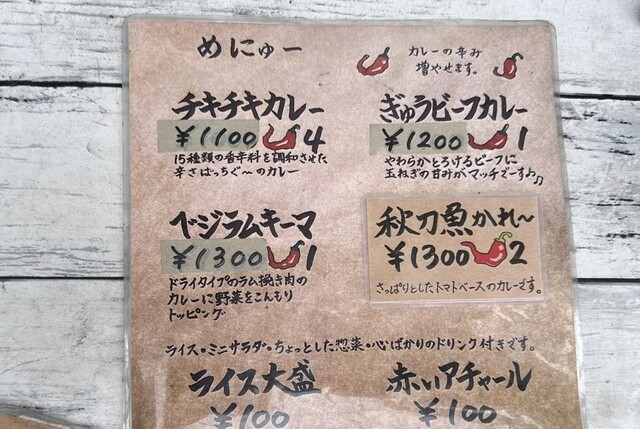 めにゅー
カレーの辛み
増やせます。
チキチキカレー
¥1100 4
15種類の香辛料を調和させた
辛さばっちぐ〜のカレー
ぎゅうビーフカレー
¥1200 1
やわらかとろけるビーフに
玉ねぎの甘みがマッチでーすよ♪
ベジラムキーマ
¥1300 1
ドライタイプのラム挽き肉の
カレーに野菜をこんもり
トッピング
秋刀魚かれ〜
¥1300 2
さっぱりとしたトマトベースのカレーです。
ライス・ミニサラダ・ちょっとした惣菜・心ばかりのドリンク付きです。
ライス大盛
¥100
赤いアチャール
¥100